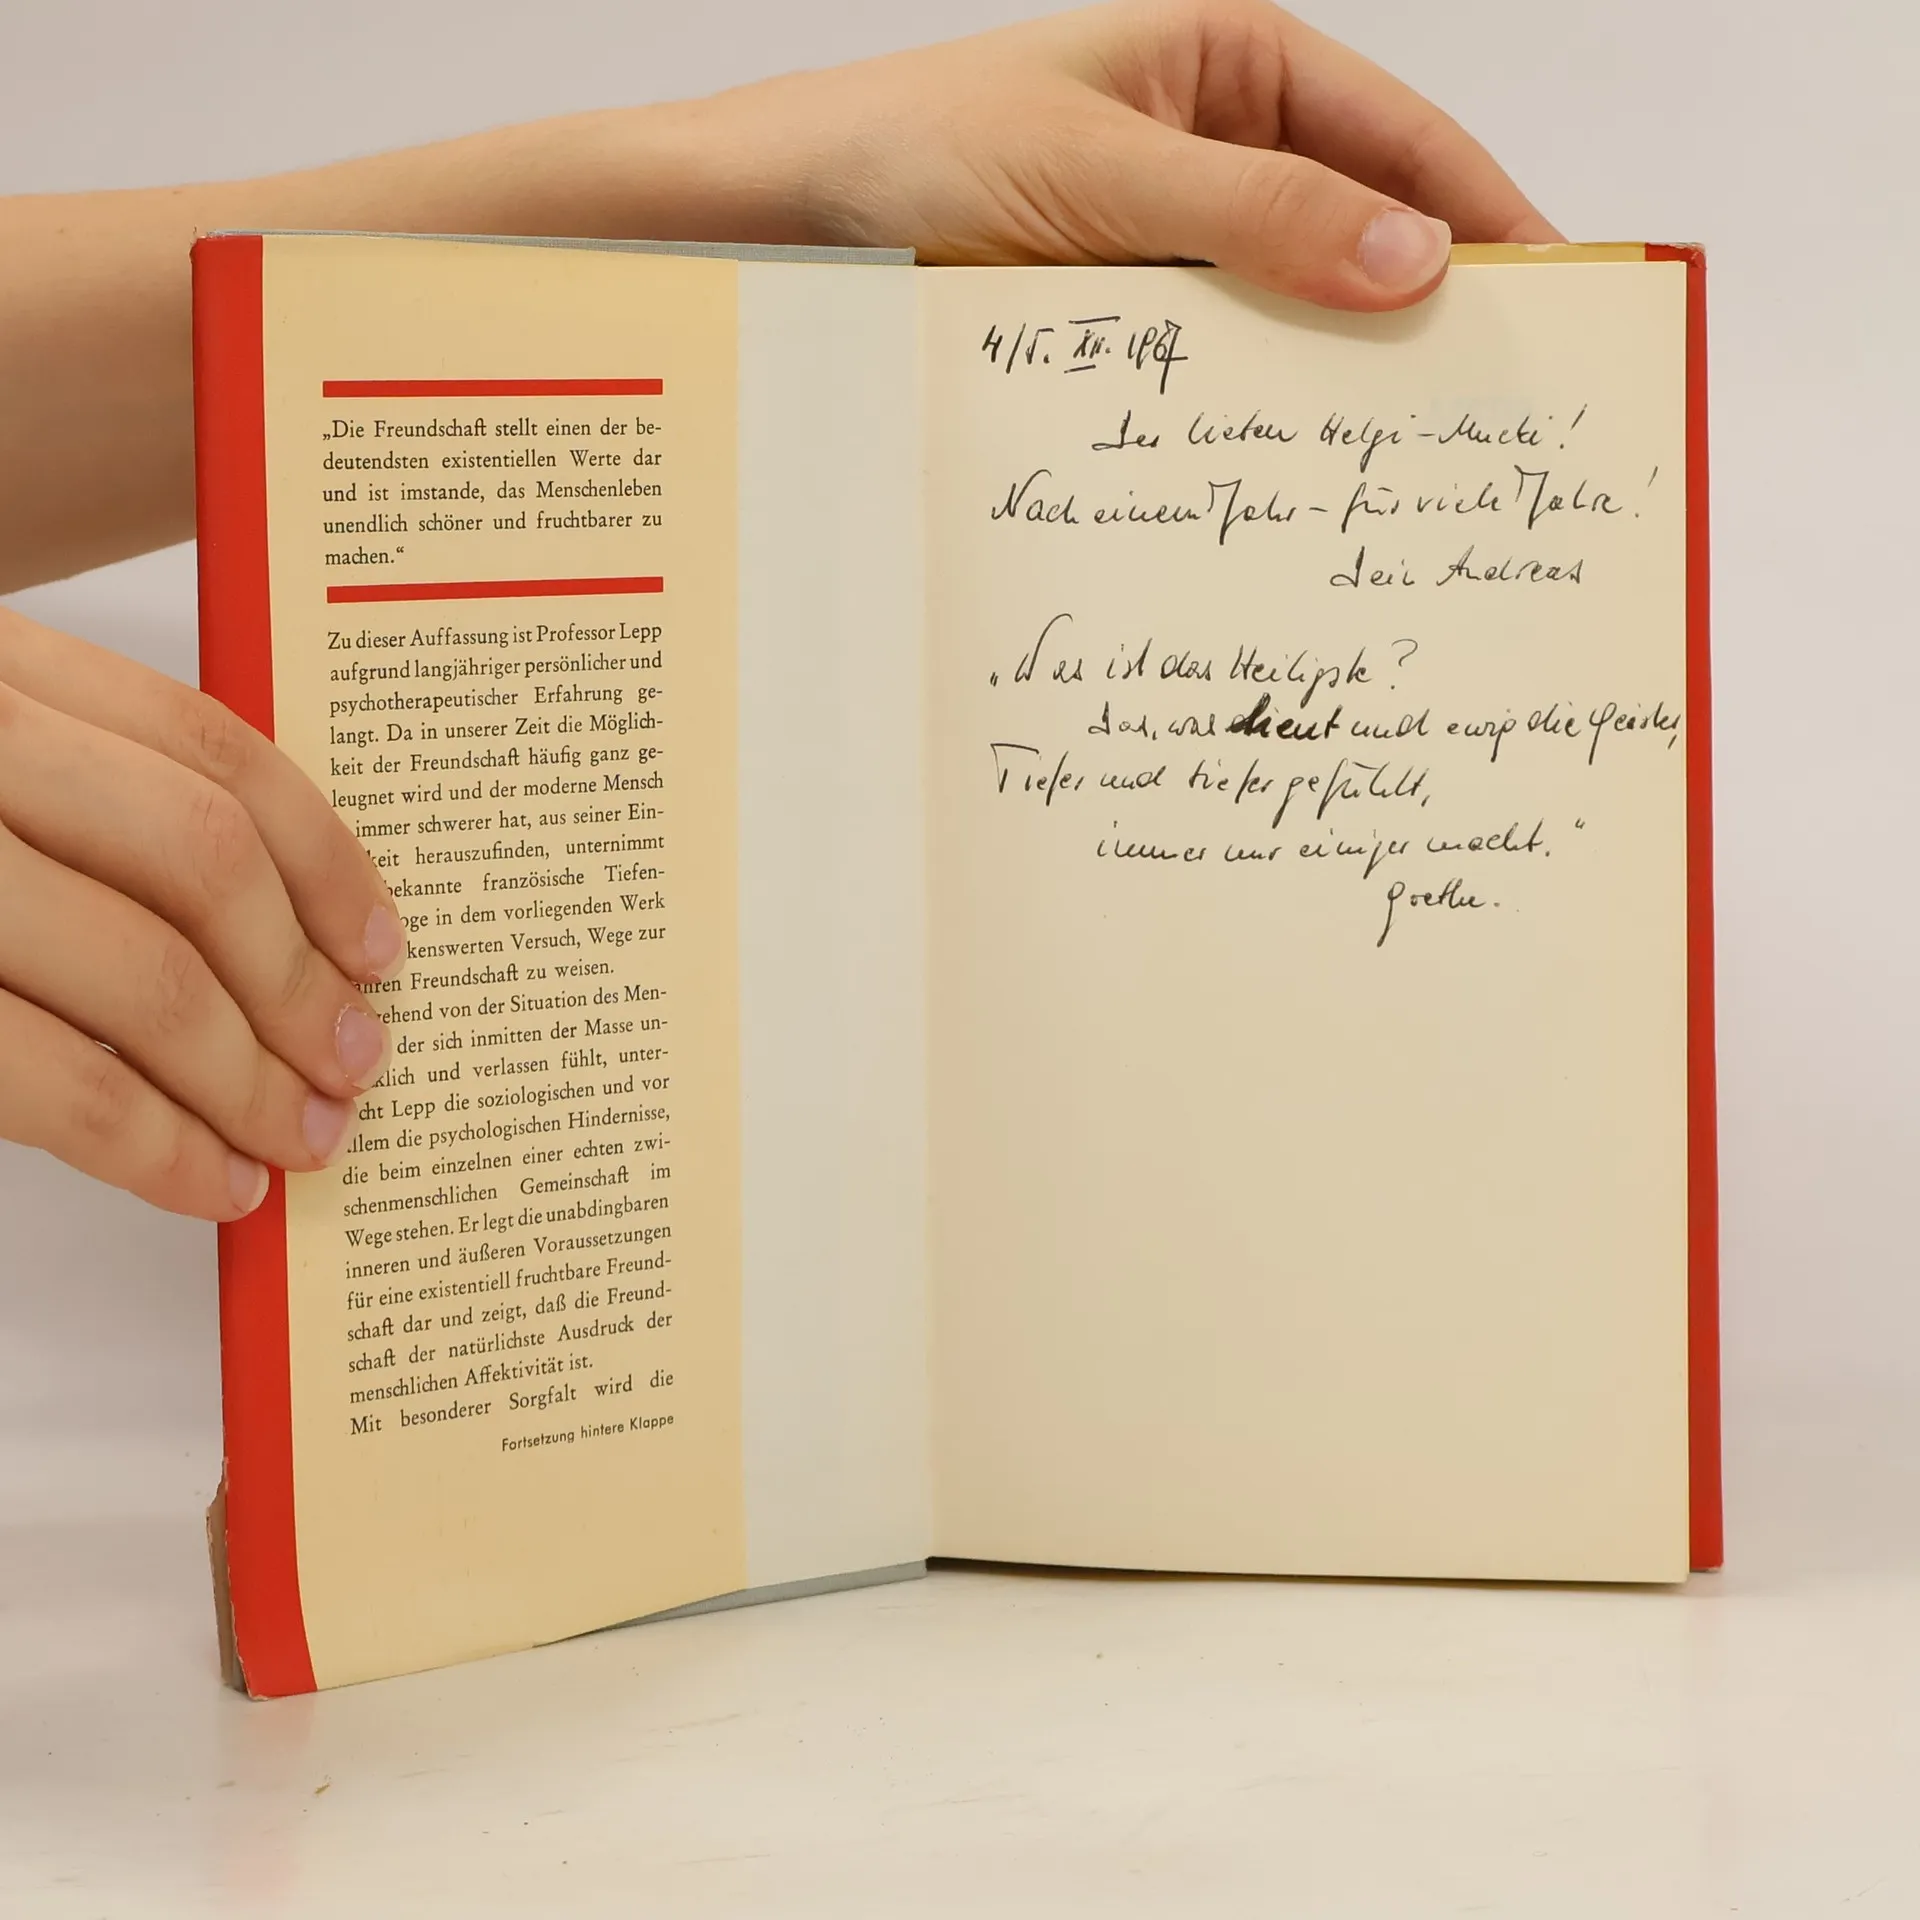 „Die Freundschaft stellt einen der be-
deutendsten existentiellen Werte dar
und ist imstande, das Menschenleben
unendlich schöner und fruchtbarer zu
machen.“
Zu dieser Auffassung ist Professor Lepp
aufgrund langjähriger persönlicher und
psychotherapeutischer Erfahrung ge-
langt. Da in unserer Zeit die Möglich-
keit der Freundschaft häufig ganz ge-
leugnet wird und der moderne Mensch
immer schwerer hat, aus seiner Ein-
keit herauszufinden, unternimmt
bekannte französische Tiefen-
oge in dem vorliegenden Werk
kenswerten Versuch, Wege zur
ahren Freundschaft zu weisen.
gehend von der Situation des Men-
der sich inmitten der Masse un-
klich und verlassen fühlt, unter-
cht Lepp die soziologischen und vor
allem die psychologischen Hindernisse,
die beim einzelnen einer echten zwi-
schenmenschlichen Gemeinschaft im
Wege stehen. Er legt die unabdingbaren
inneren und äußeren Voraussetzungen
für eine existentiell fruchtbare Freund-
schaft dar und zeigt, daß die Freund-
schaft der natürlichste Ausdruck der
menschlichen Affektivität ist.
Mit besonderer Sorgfalt wird die
Fortsetzung hintere Klappe
4/5. XII. 1967
Der lieben Helgi-Mucki!
Nach einem Jahr - für viele Jahre!
Dein Andreas
„Was ist das Heiligste?
Das, was und ewig die Geister,
Tiefer und tiefer gefühlt,
immer nur einiger macht.“
Goethe.